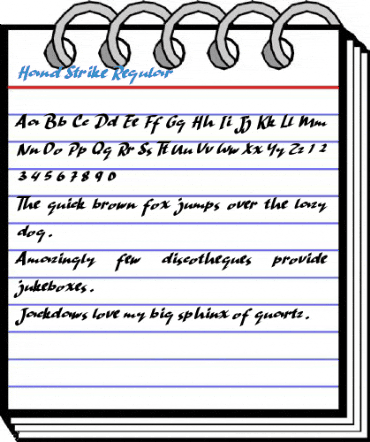 Hand Strike Regular
Aa Bb Cc Dd Ee Ff Gg Hh Ii Jj Kk Ll Mm
Nn Oo Pp Qq Rr Ss Tt Uu Vv Ww Xx Yy Zz 1 2
3 4 5 6 7 8 9 0
The quick brown fox jumps over the lazy
dog.
Amazingly few discotheques provide
jukeboxes.
Jackdaws love my big sphinx of quartz.